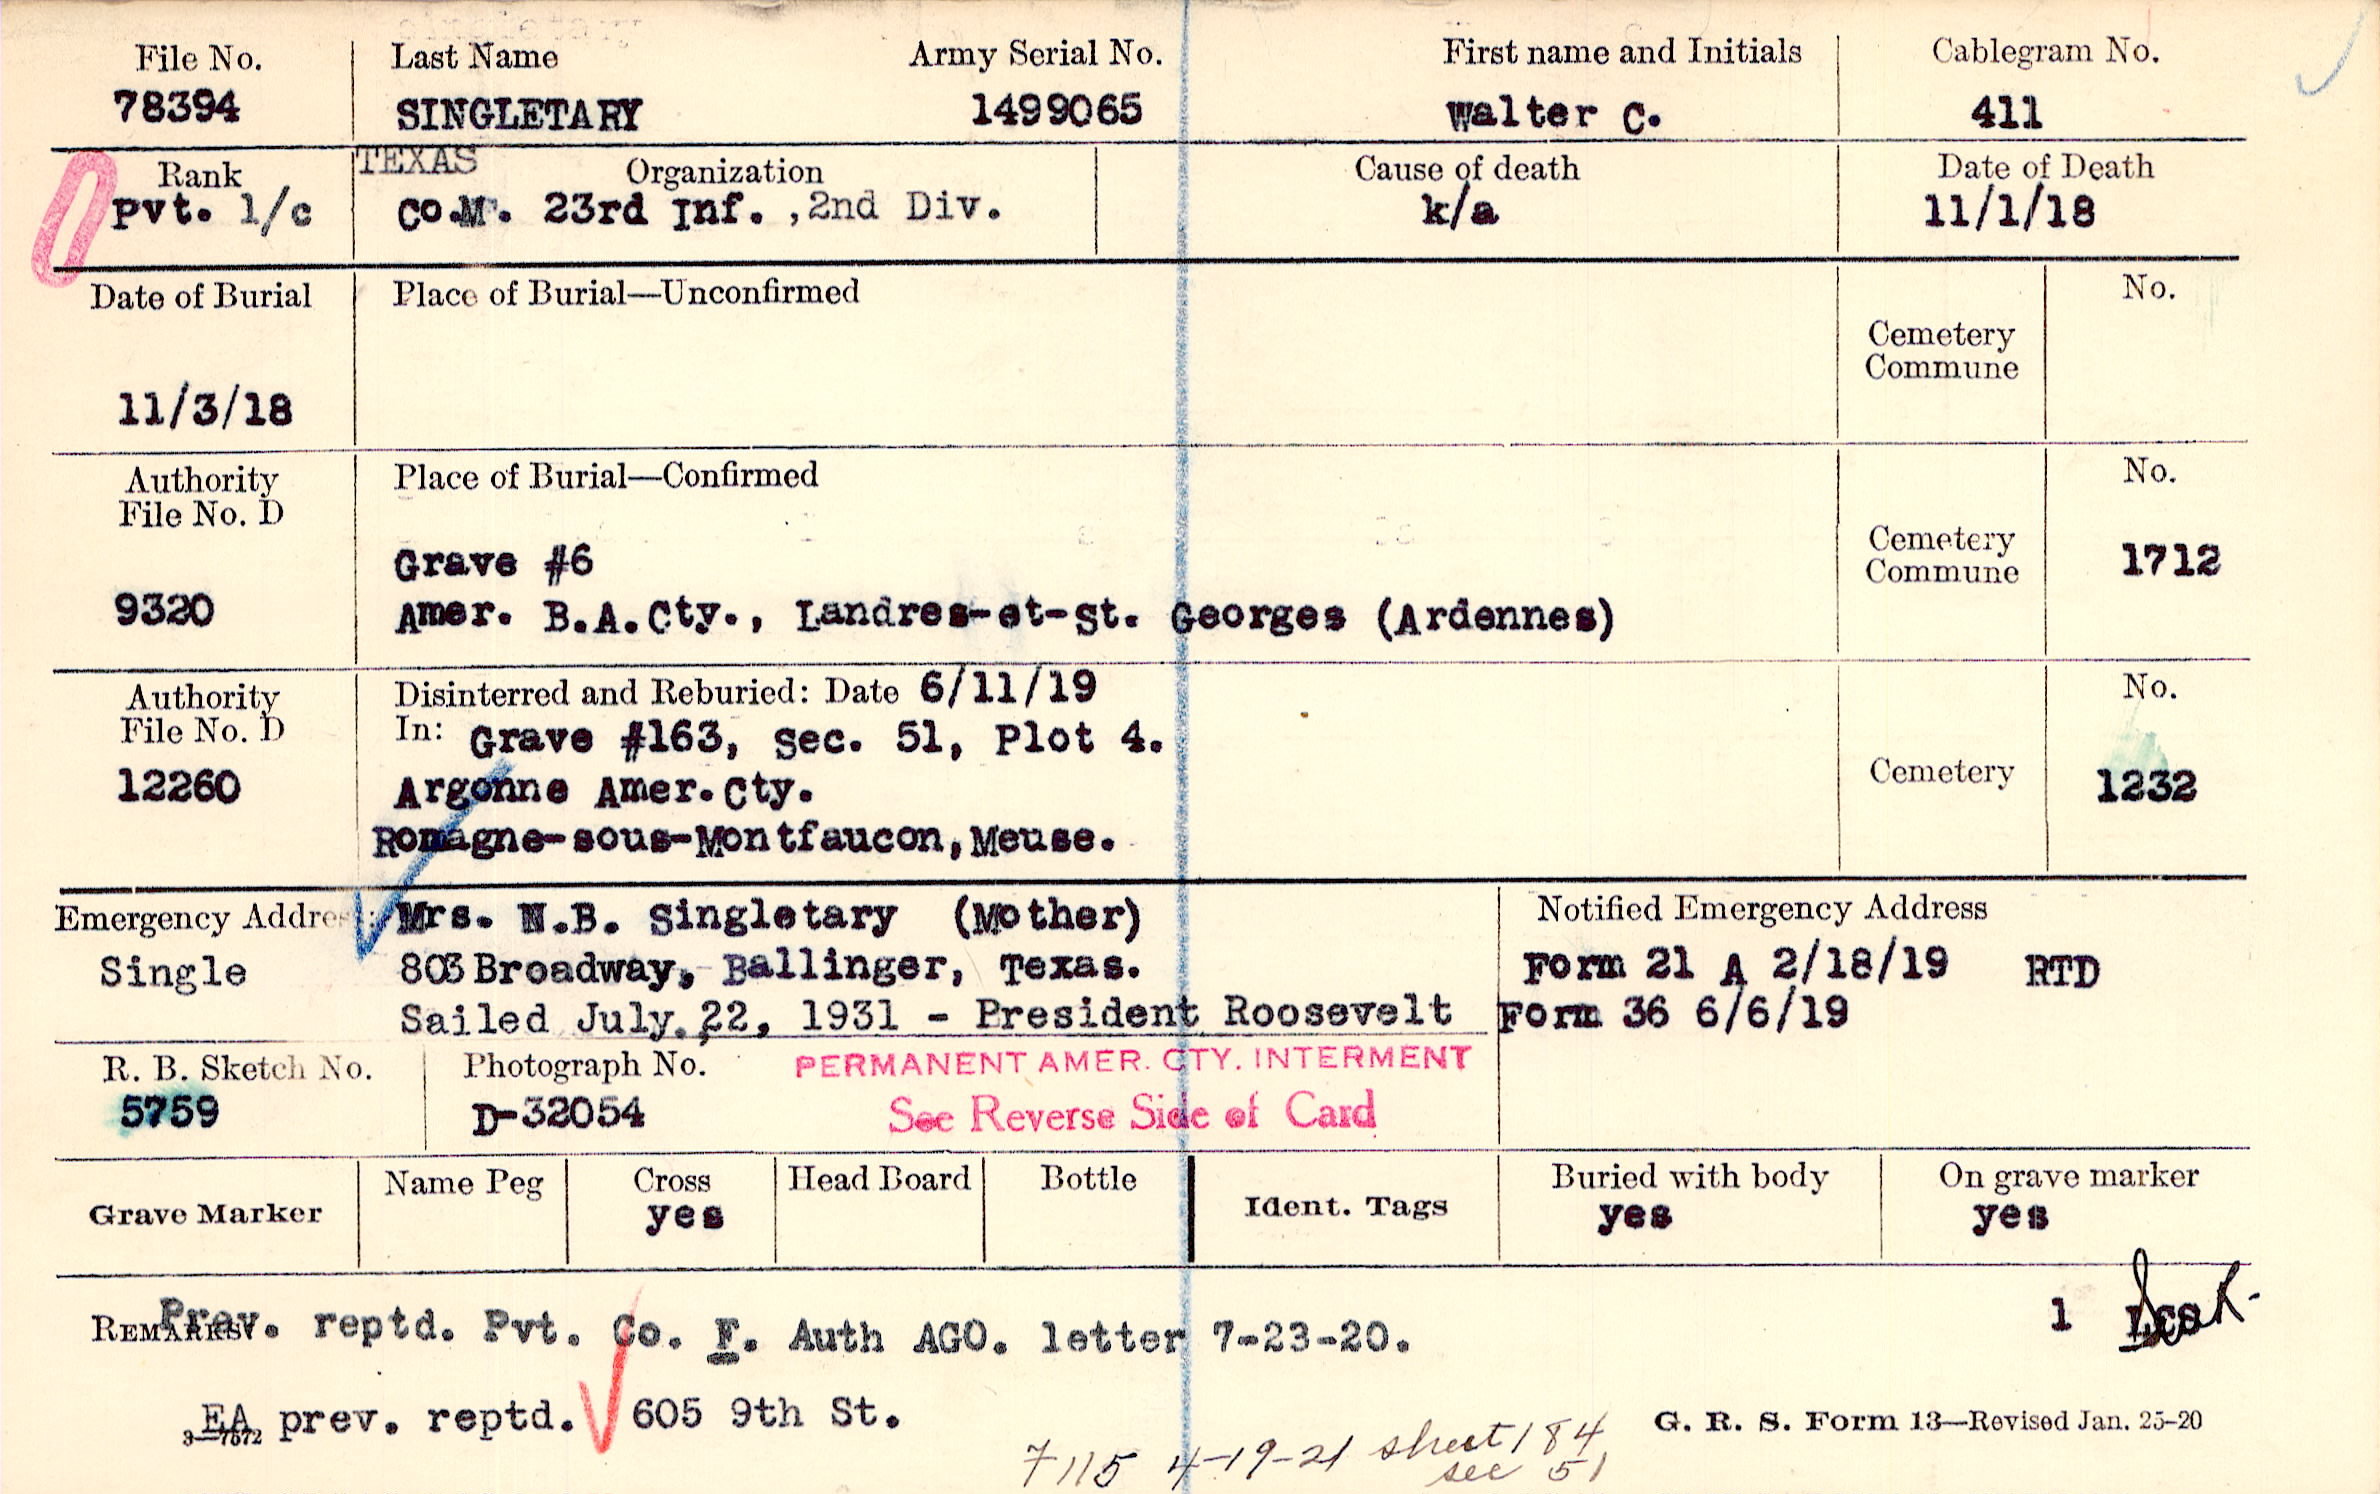 File No. Last Name Army Serial No. First name and Initials Cablegram No.
78394 SINGLETARY 1499065 Walter C. 411
TEXAS
Rank Organization Cause of death Date of Death
Pvt. 1/c Co.M. 23rd Inf. ,2nd Div. k/a 11/1/18
Date of Burial Place of Burial—Unconfirmed No.
Cemetery
Commune
11/3/18
Authority Place of Burial—Confirmed No.
File No. D
Cemetery
Grave #6 Commune 1712
9320 Amer. B.A.Cty., Landres-et-St. Georges (Ardennes)
Authority Disinterred and Reburied: Date 6/11/19 No.
File No. D In: Grave #163, Sec. 51, Plot 4.
12260 Argonne Amer.Cty. Cemetery 1232
Romagne-sous-Montfaucon,Meuse.
Emergency Address: Mrs. N.B. Singletary (Mother) Notified Emergency Address
Single 803 Broadway, Ballinger, Texas. Form 21 A 2/18/19 RTD
Sailed July 22, 1931 - President Roosevelt Form 36 6/6/19
R. B. Sketch No. Photograph No. PERMANENT AMER. CTY. INTERMENT
5759 D-32054 See Reverse Side of Card
Grave Marker Name Peg Cross Head Board Bottle Ident. Tags Buried with body On grave marker
yes yes yes
REMARKS: Prev. reptd. Pvt. Co. F. Auth AGO. letter 7-23-20. 1
EA prev. reptd. 605 9th St.
3—7572 G. R. S. Form 13—Revised Jan. 25-20
7115 4-19-21 sheet 184
sec 51